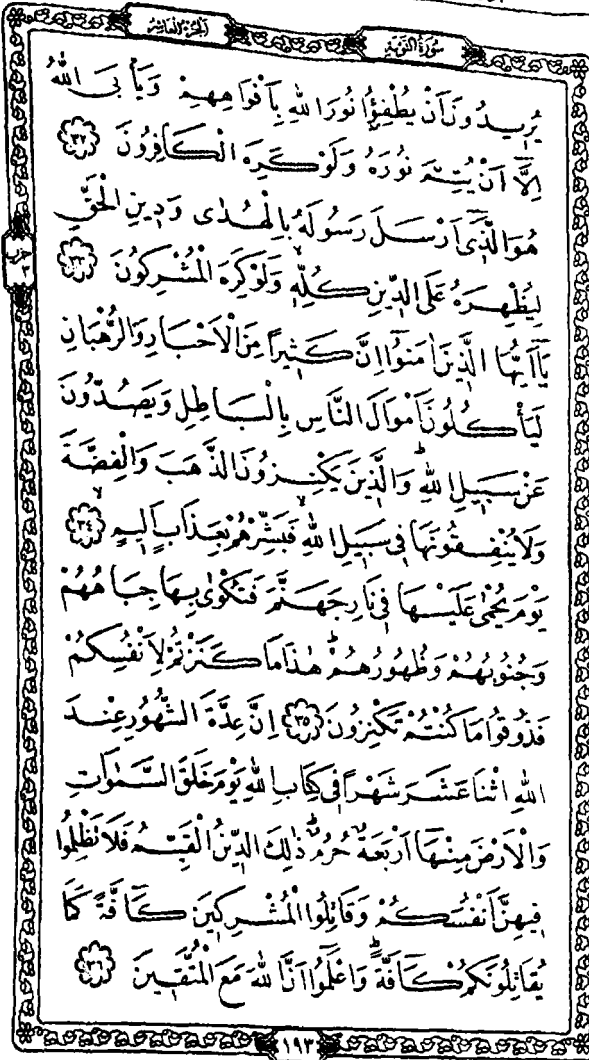 الجزء العاشر
سورة التوبة
يُرِيدُونَ أَنْ يُطْفِؤُا نُورَ اللّٰهِ بِأَفْوَاهِهِمْ وَيَأْبَى اللّٰهُ
اِلَّٓا اَنْ يُتِمَّ نُورَهُ وَلَوْ كَرِهَ الْكَافِرُونَ ﴿٣٢﴾
هُوَ الَّذ۪ٓي اَرْسَلَ رَسُولَهُ بِالْهُدٰى وَد۪ينِ الْحَقِّ
لِيُظْهِرَهُ عَلَى الدّ۪ينِ كُلِّه۪ۙ وَلَوْ كَرِهَ الْمُشْرِكُونَ ﴿٣٣﴾
يَٓا اَيُّهَا الَّذ۪ينَ اٰمَنُٓوا اِنَّ كَث۪يرًا مِنَ الْاَحْبَارِ وَالرُّهْبَانِ
لَيَأْكُلُونَ اَمْوَالَ النَّاسِ بِالْبَاطِلِ وَيَصُدُّونَ
عَنْ سَب۪يلِ اللّٰهِۜ وَالَّذ۪ينَ يَكْنِزُونَ الذَّهَبَ وَالْفِضَّةَ
وَلَا يُنْفِقُونَهَا ف۪ي سَب۪يلِ اللّٰهِۙ فَبَشِّرْهُمْ بِعَذَابٍ اَل۪يمٍۙ ﴿٣٤﴾
يَوْمَ يُحْمٰى عَلَيْهَا ف۪ي نَارِ جَهَنَّمَ فَتُكْوٰى بِهَا جِبَاهُهُمْ
وَجُنُوبُهُمْ وَظُهُورُهُمْۜ هٰذَا مَا كَنَزْتُمْ لِاَنْفُسِكُمْ
فَذُوقُوا مَا كُنْتُمْ تَكْنِزُونَ ﴿٣٥﴾ اِنَّ عِدَّةَ الشُّهُورِ عِنْدَ
اللّٰهِ اثْنَا عَشَرَ شَهْرًا ف۪ي كِتَابِ اللّٰهِ يَوْمَ خَلَقَ السَّمٰوَاتِ
وَالْاَرْضَ مِنْهَٓا اَرْبَعَةٌ حُرُمٌۜ ذٰلِكَ الدّ۪ينُ الْقَيِّمُ فَلَا تَظْلِمُوا
ف۪يهِنَّ اَنْفُسَكُمْ وَقَاتِلُوا الْمُشْرِك۪ينَ كَٓافَّةً كَمَا
يُقَاتِلُونَكُمْ كَٓافَّةًۜ وَاعْلَمُٓوا اَنَّ اللّٰهَ مَعَ الْمُتَّق۪ينَ ﴿٣٦﴾
١٩٣